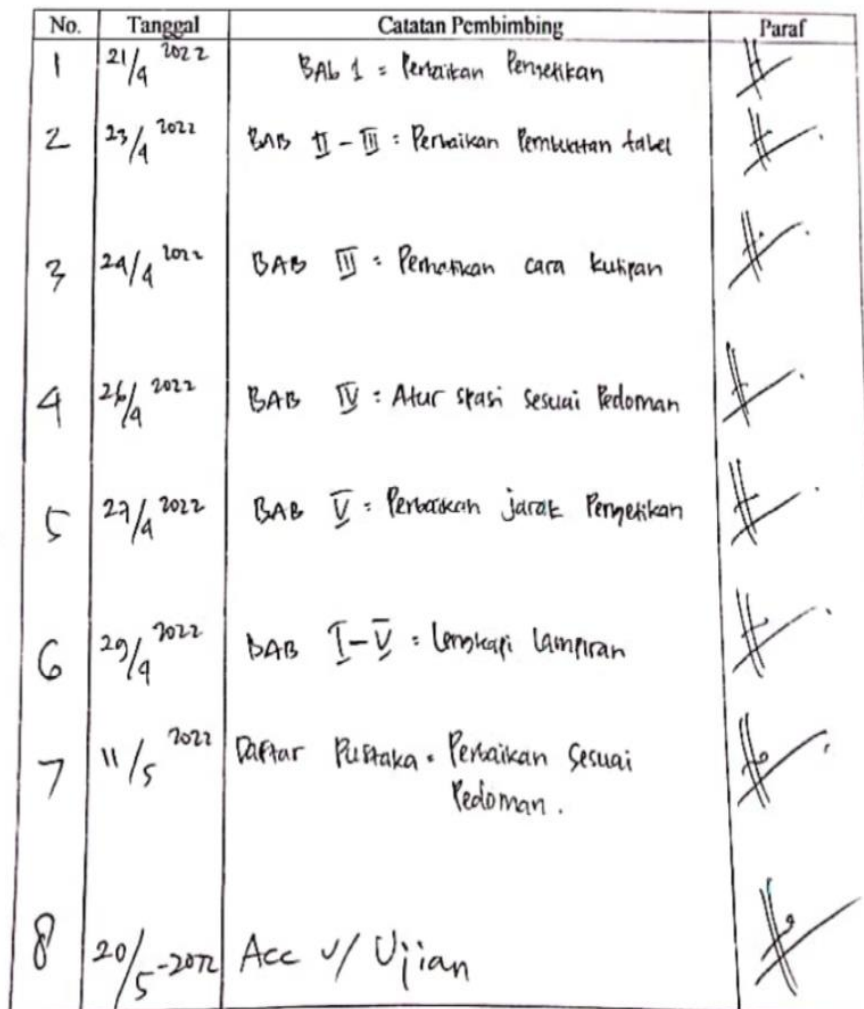 No. Tanggal Catatan Pembimbing Paraf
1 21/4 2022 BAb 1 = Perbaikan Pengetikan
2 23/4 2022 BAB II - III : Perbaikan Pembuatan tabel
3 24/4 2022 BAB III : Perhatikan cara kutipan
4 26/4 2022 BAB IV : Atur spasi sesuai Pedoman
5 27/4 2022 BAB V : Perbaikan jarak Pengetikan
6 29/4 2022 BAB I-V : Lengkapi Lampiran
7 11/5 2022 Daftar Pustaka : Perbaikan Sesuai
Pedoman.
8 20/5-2022 Acc u/ Ujian